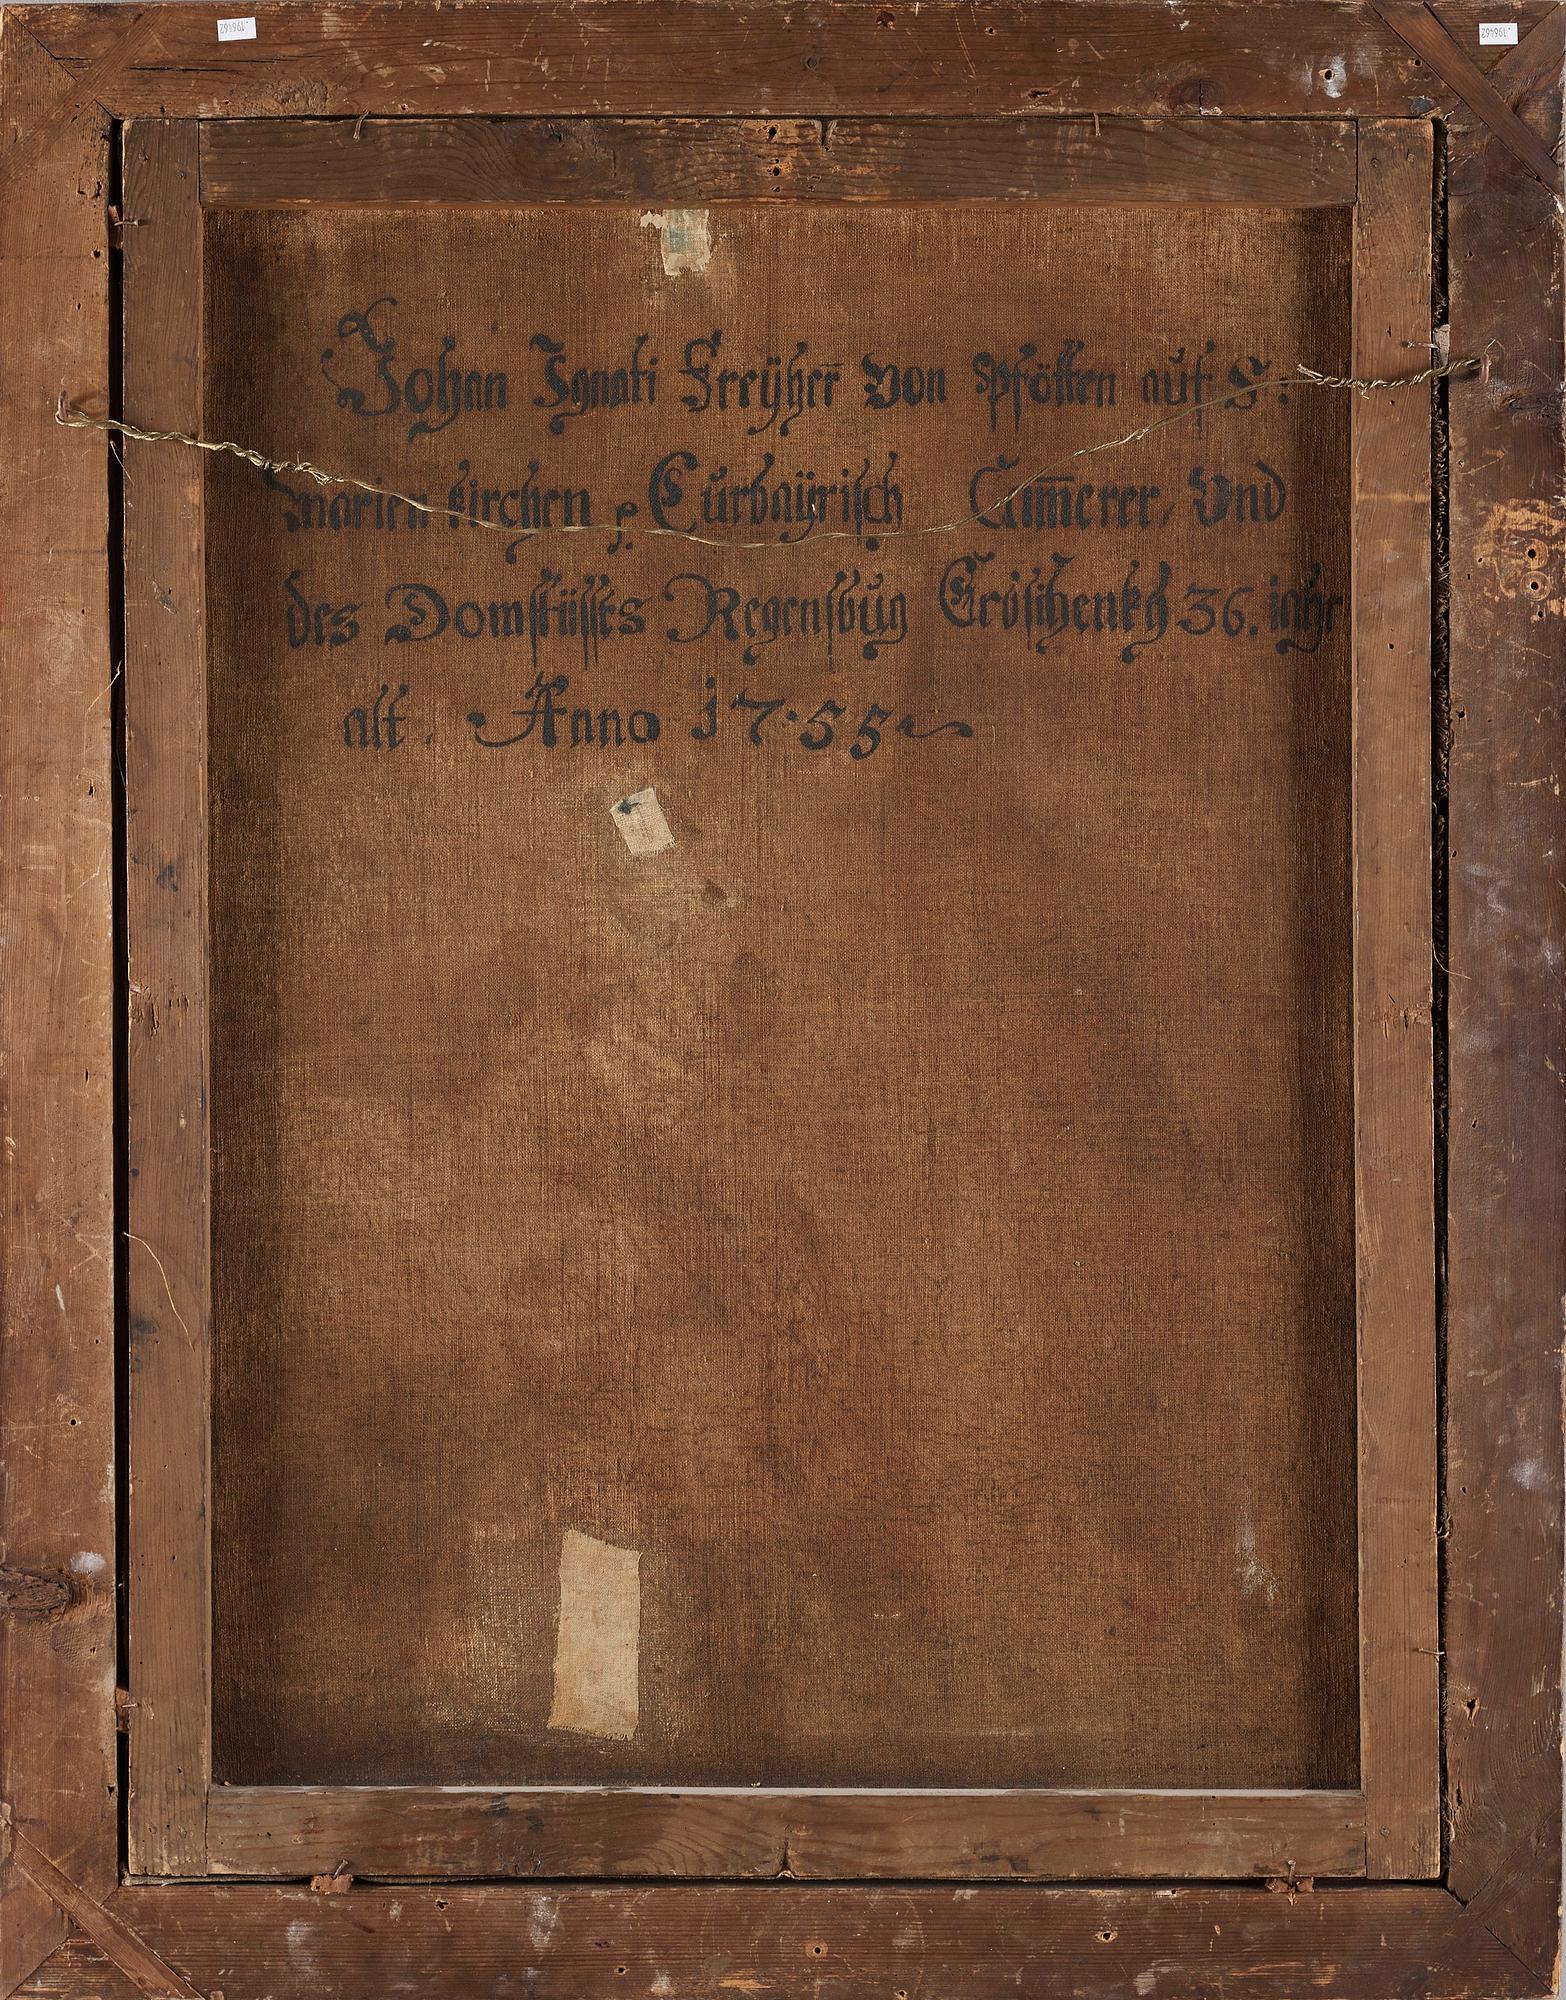 .196462
.196462
Johan Ignati Freÿherr von Pfötten auf S.
Marien kirchen p. Curbaÿrisch Cam̅erer, Vnd
des Domstüffts Regensbug Erbschenkh 36. iahr
alt. Anno 1755